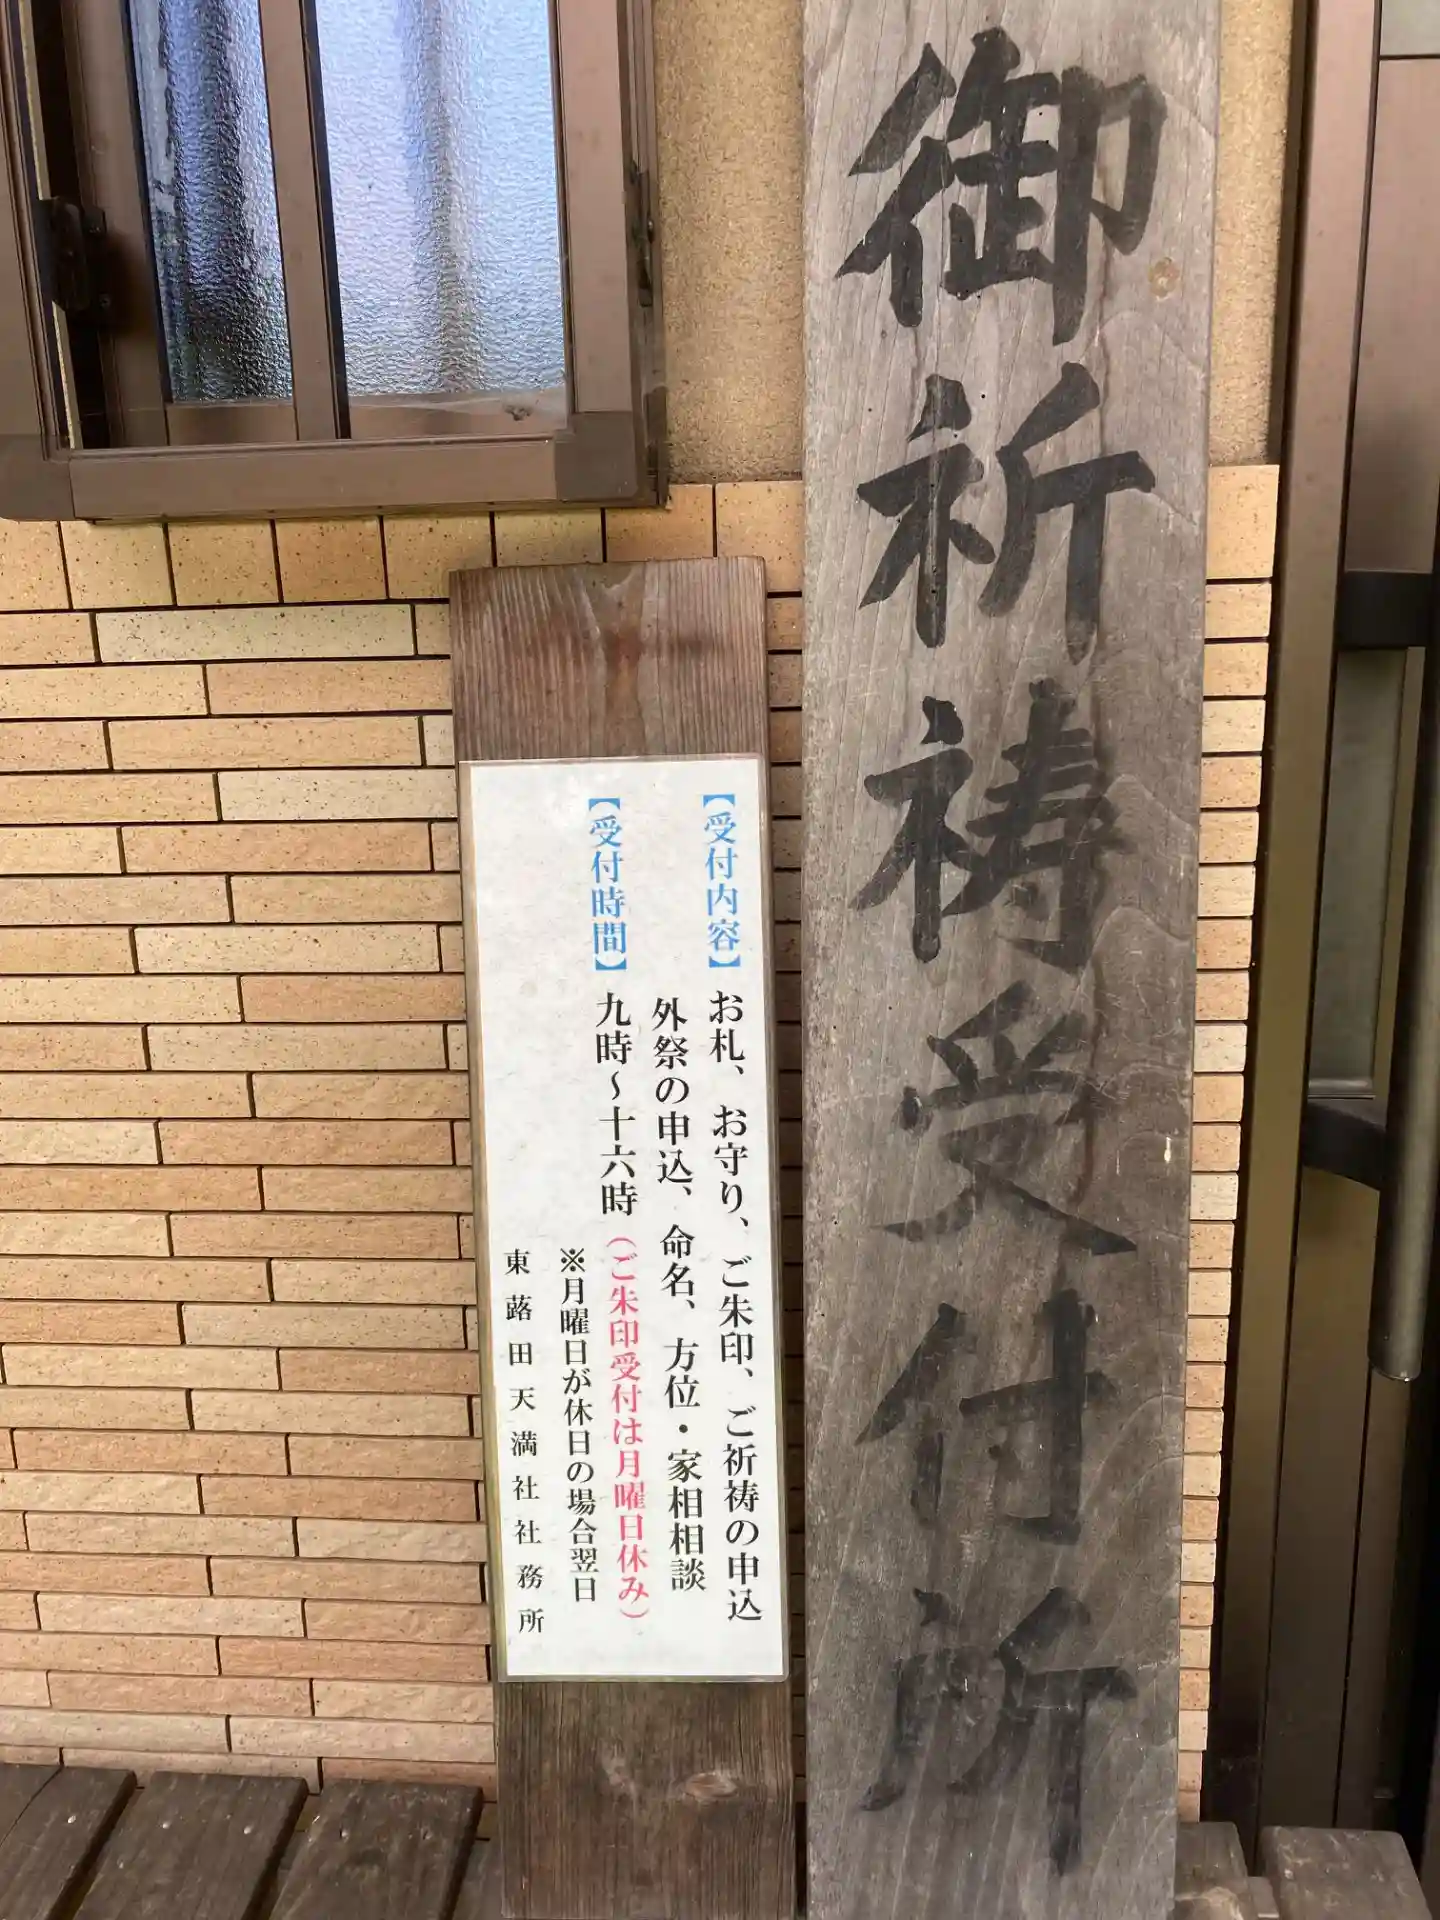 御祈祷受付所
【受付内容】お札、お守り、ご朱印、ご祈祷の申込
外祭の申込、命名、方位・家相相談
【受付時間】九時～十六時（ご朱印受付は月曜日休み）
※月曜日が休日の場合翌日
東蕗田天満社社務所